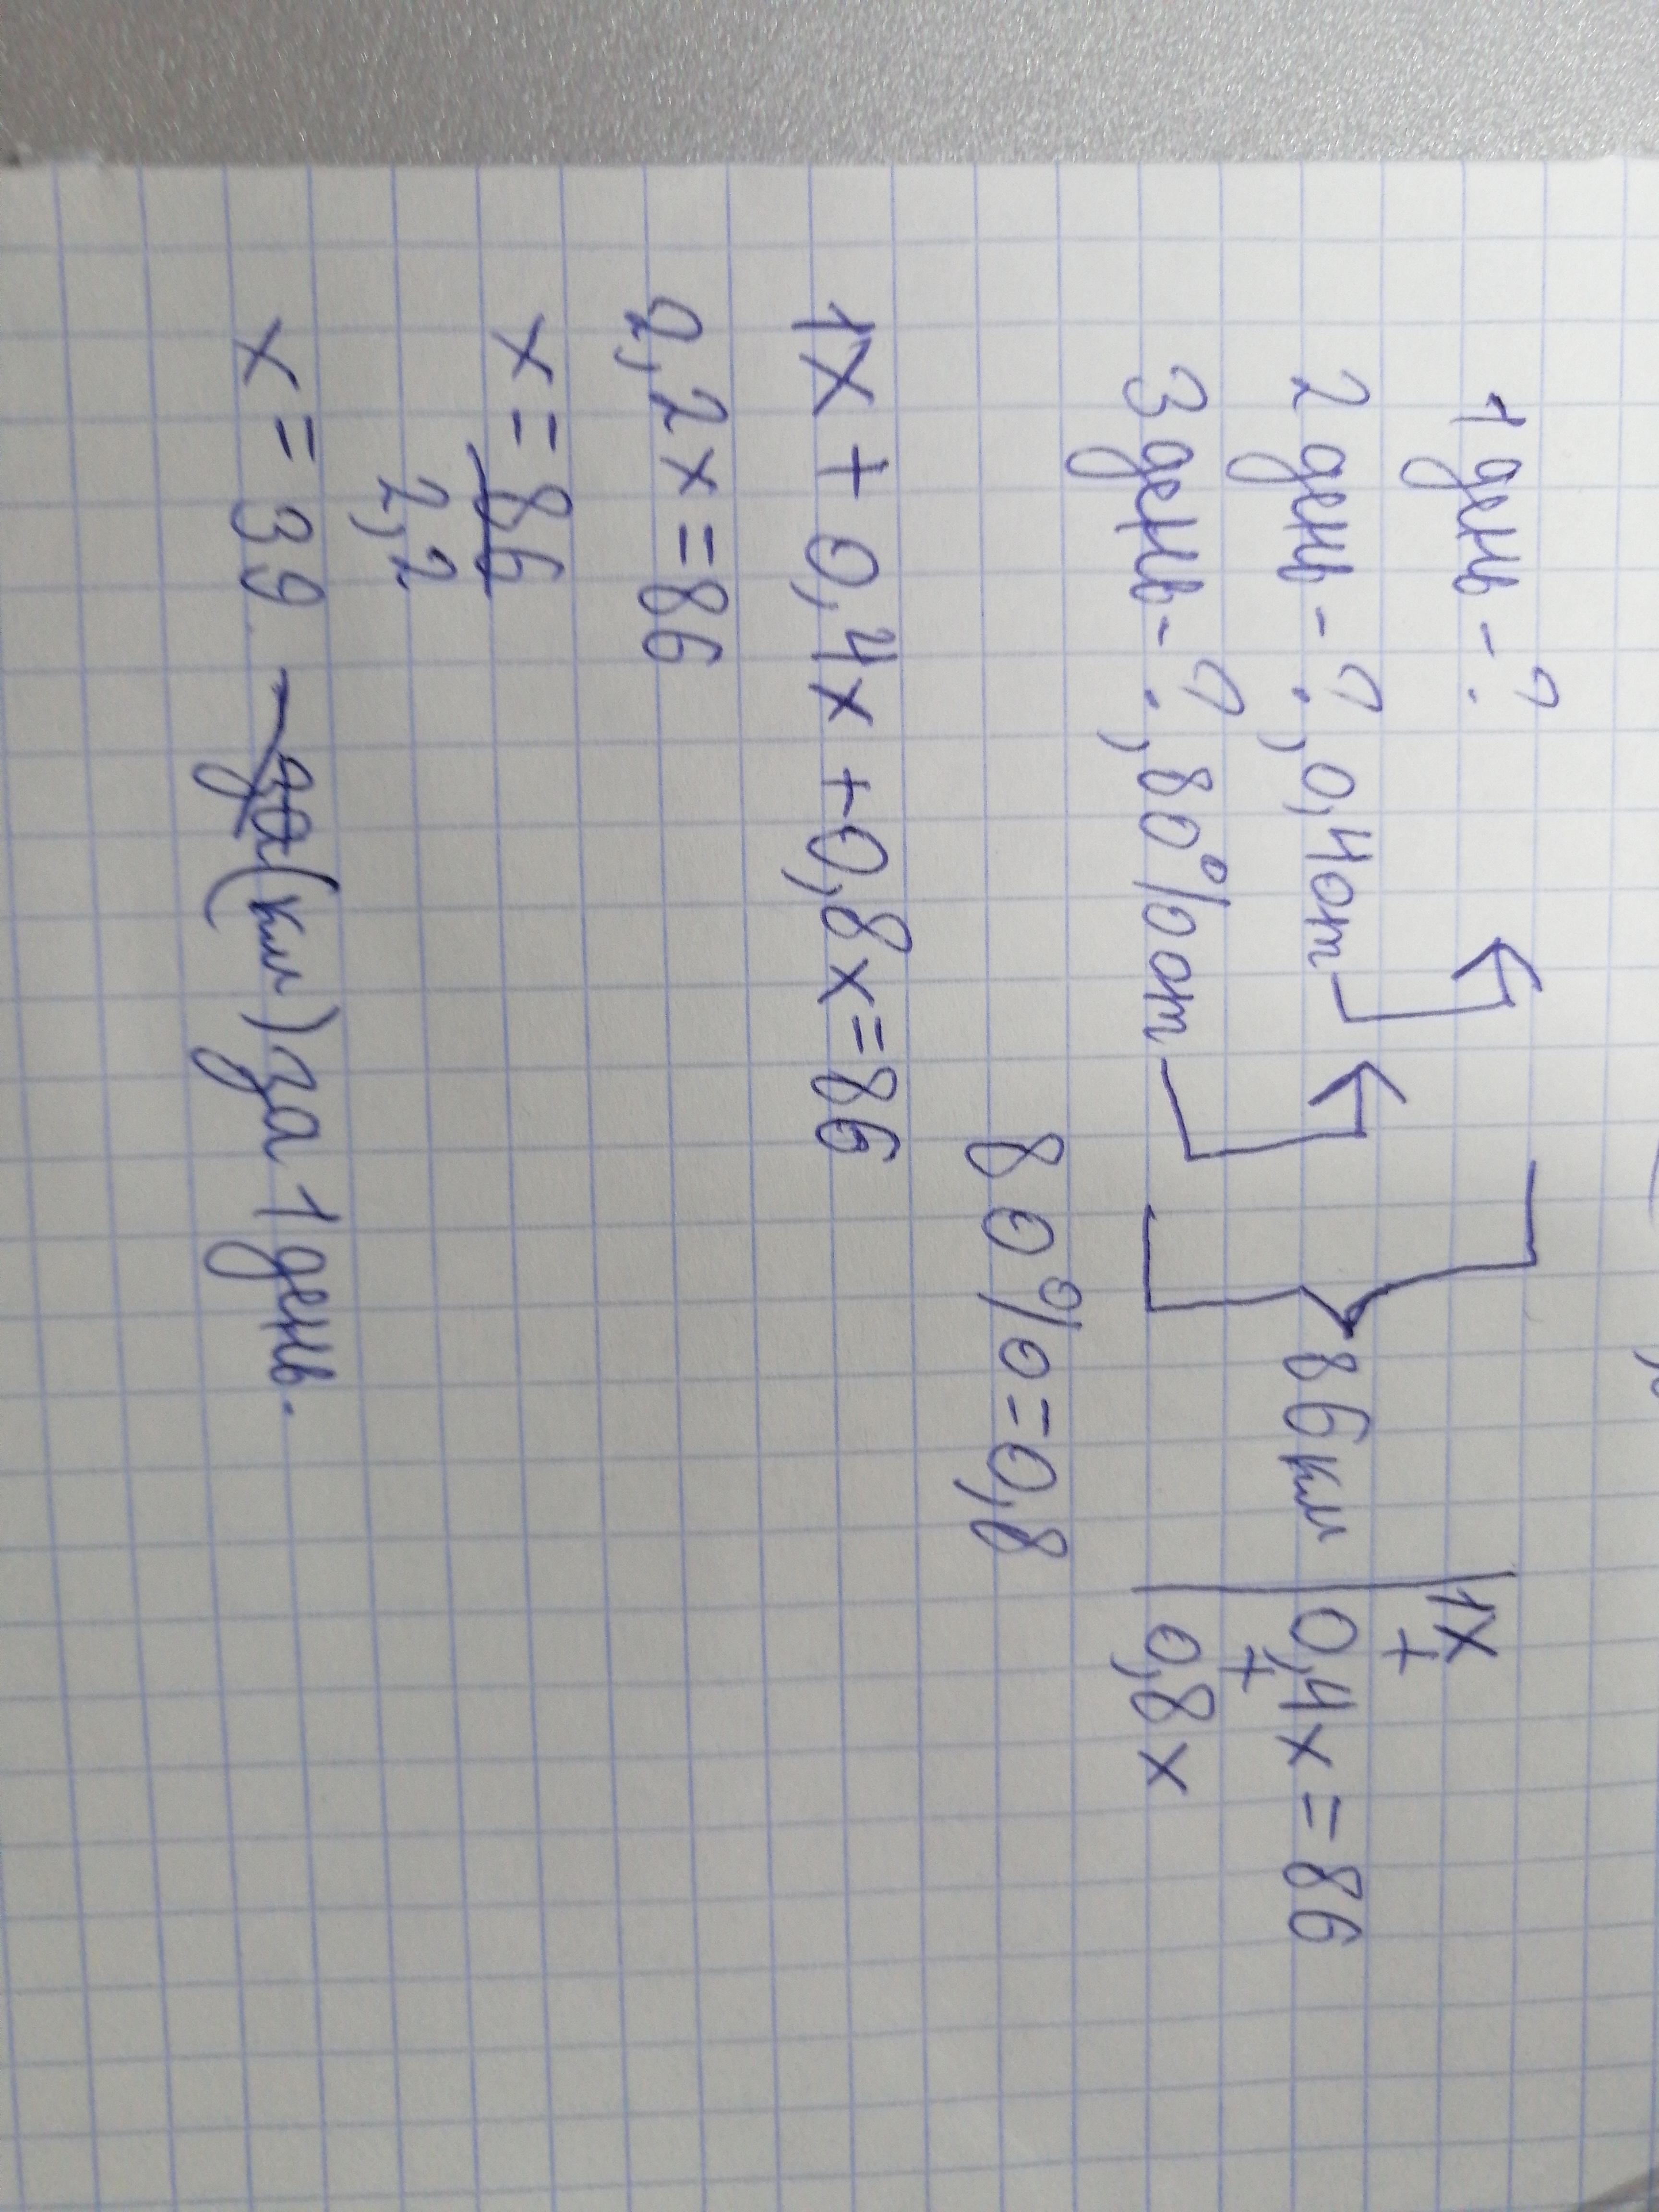 1 день - ?
1x
+
2 день - ?, 0,4 от
86 км
0,4x = 86
+
3 день - ?, 80% от
0,8x
80% = 0,8
1x + 0,4x + 0,8x = 86
2,2x = 86
x = 86
2,2
x = 39 (км) за 1 день.